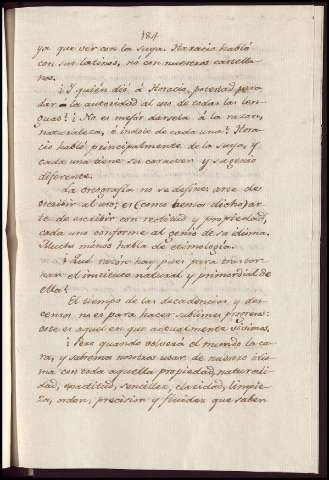 184
ya que ver con la suya. Horacio habló
con sus latinos, no con nuestros castella-
nos.
¿I quién dió á Horacio, potestad para
dar á la autoridad al uso de todas las len-
guas? ¿No es mejor darsela á la razon,
naturaleza, é indole de cada una? Hora-
cio habló principalmente de la suya, y
cada una tiene su caracter y su genio
diferente.
La orografía no se define: arte de
escribir al uso; es (como hemos dicho) ar-
te de escribir con rectitud y propiedad,
cada uno conforme al genio de su idioma.
Mucho menos habla de etimología.
¿Qué razon hay pues para trastor-
nar el instituto natural y primordial de
ella?
El tiempo de las decadencias y des-
censo, no es para hacer sublimes progresos:
este es aquel en que actualmente vivimos.
¿Pero quando volverá el mundo la ca-
ra, y sabremos nosotros usar de nuestro idio-
ma con toda aquella propiedad, naturali-
dad, exactitud, sencillez, claridad, limpie-
za, orden, precision y fluidez que saben